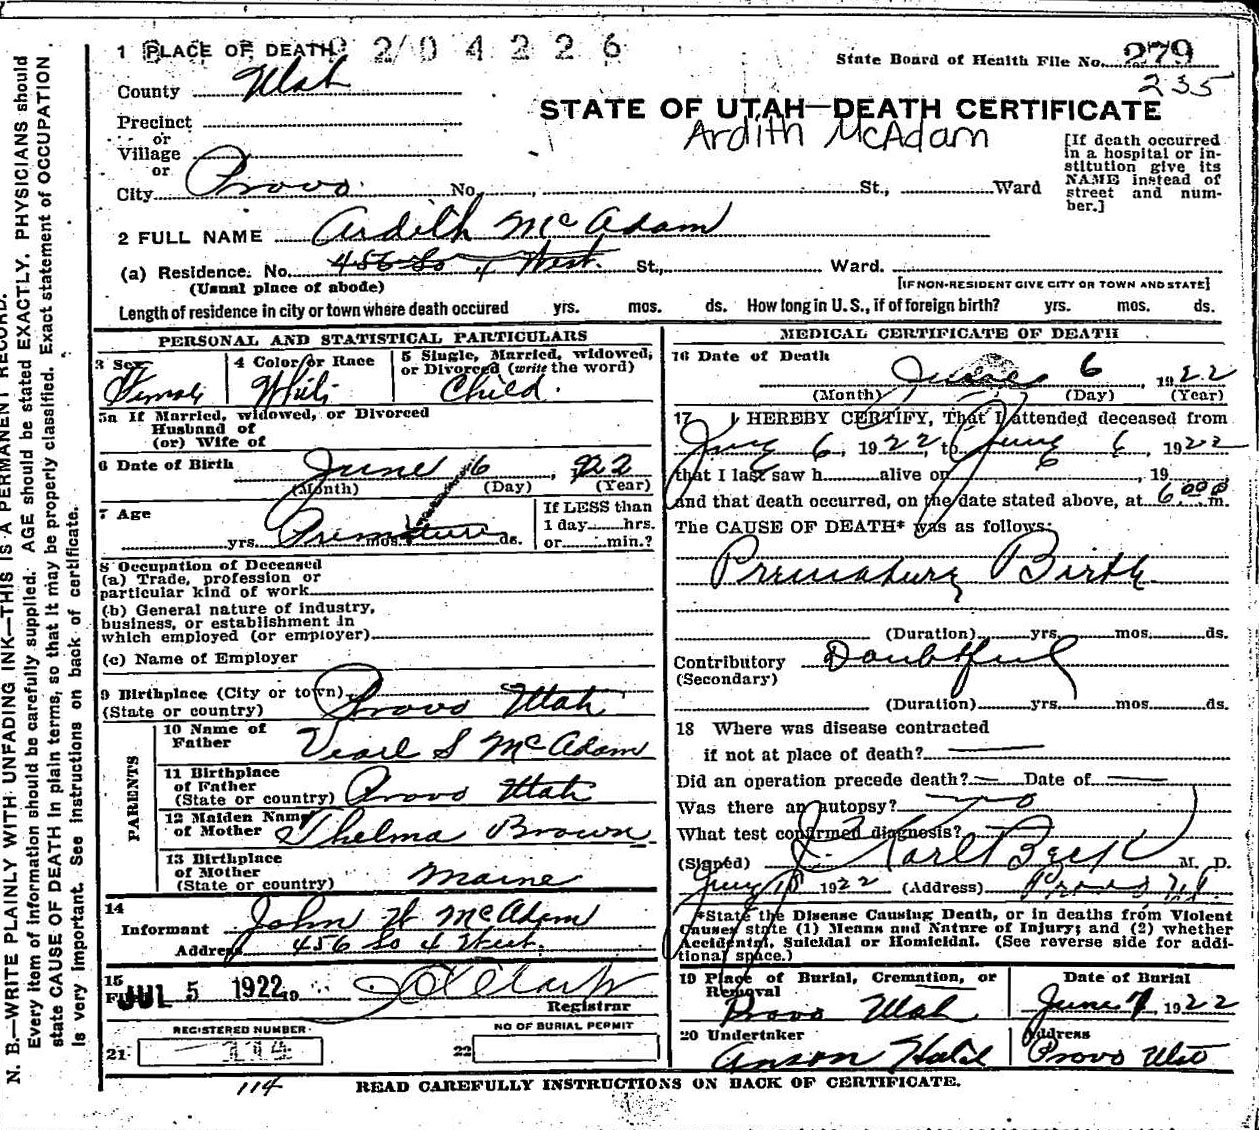 N. B.—WRITE PLAINLY WITH UNFADING INK—THIS IS A PERMANENT RECORD.
Every item of information should be carefully supplied. AGE should be stated EXACTLY. PHYSICIANS should
state CAUSE OF DEATH in plain terms, so that it may be properly classified. Exact statement of OCCUPATION
is very important. See instructions on back of certificate.
1 PLACE OF DEATH 2/04226
State Board of Health File No. 279
235
County Utah
STATE OF UTAH—DEATH CERTIFICATE
Ardith McAdam
Precinct
or
Village
or
City Provo No. , St., Ward
[If death occurred
in a hospital or in-
stitution give its
NAME instead of
street and num-
ber.]
2 FULL NAME Ardith McAdam
(a) Residence. No. 456 So 4 West. St., Ward.
(Usual place of abode)
[IF NON-RESIDENT GIVE CITY OR TOWN AND STATE]
Length of residence in city or town where death occured yrs. mos. ds. How long in U.S., if of foreign birth? yrs. mos. ds.
PERSONAL AND STATISTICAL PARTICULARS
3 Sex Female
4 Color or Race White
5 Single, Married, widowed,
or Divorced (write the word)
Child.
5a If Married, widowed, or Divorced
Husband of
(or) Wife of
6 Date of Birth June 6, 922
(Month) (Day) (Year)
7 Age
yrs. mos. ds.
Premature
If LESS than
1 day hrs.
or min.?
8 Occupation of Deceased
(a) Trade, profession or
particular kind of work
(b) General nature of industry,
business, or establishment in
which employed (or employer)
(c) Name of Employer
9 Birthplace (City or town)
(State or country) Provo Utah
PARENTS
10 Name of
Father Vearl S McAdam
11 Birthplace
of Father
(State or country) Provo Utah
12 Maiden Name
of Mother Thelma Brown
13 Birthplace
of Mother
(State or country) Maine
14
Informant John W McAdam
Address 456 So 4 West.
15
JUL 5 1922 19
Registrar
REGISTERED NUMBER
21 114
NO OF BURIAL PERMIT
22
114
MEDICAL CERTIFICATE OF DEATH
16 Date of Death
June 6, 1922
(Month) (Day) (Year)
17 I HEREBY CERTIFY, That I attended deceased from
June 6, 1922, to June 6, 1922
that I last saw h alive on 6, 19
and that death occurred, on the date stated above, at 6 m.
The CAUSE OF DEATH* was as follows:
Premature Birth
(Duration) yrs. mos. ds.
Contributory Doubtful
(Secondary)
(Duration) yrs. mos. ds.
18 Where was disease contracted
if not at place of death?
Did an operation precede death? Date of
Was there an autopsy? no
What test confirmed diagnosis?
(Signed) J. Karl Beck M. D.
1922 (Address) Provo Ut.
*State the Disease Causing Death, or in deaths from Violent
Causes, state (1) Means and Nature of Injury; and (2) whether
Accidental, Suicidal or Homicidal. (See reverse side for addi-
tional space.)
19 Place of Burial, Cremation, or
Removal
Provo Utah
Date of Burial
June 7, 1922
20 Undertaker
Anson Hatch
Address
Provo Utah
READ CAREFULLY INSTRUCTIONS ON BACK OF CERTIFICATE.